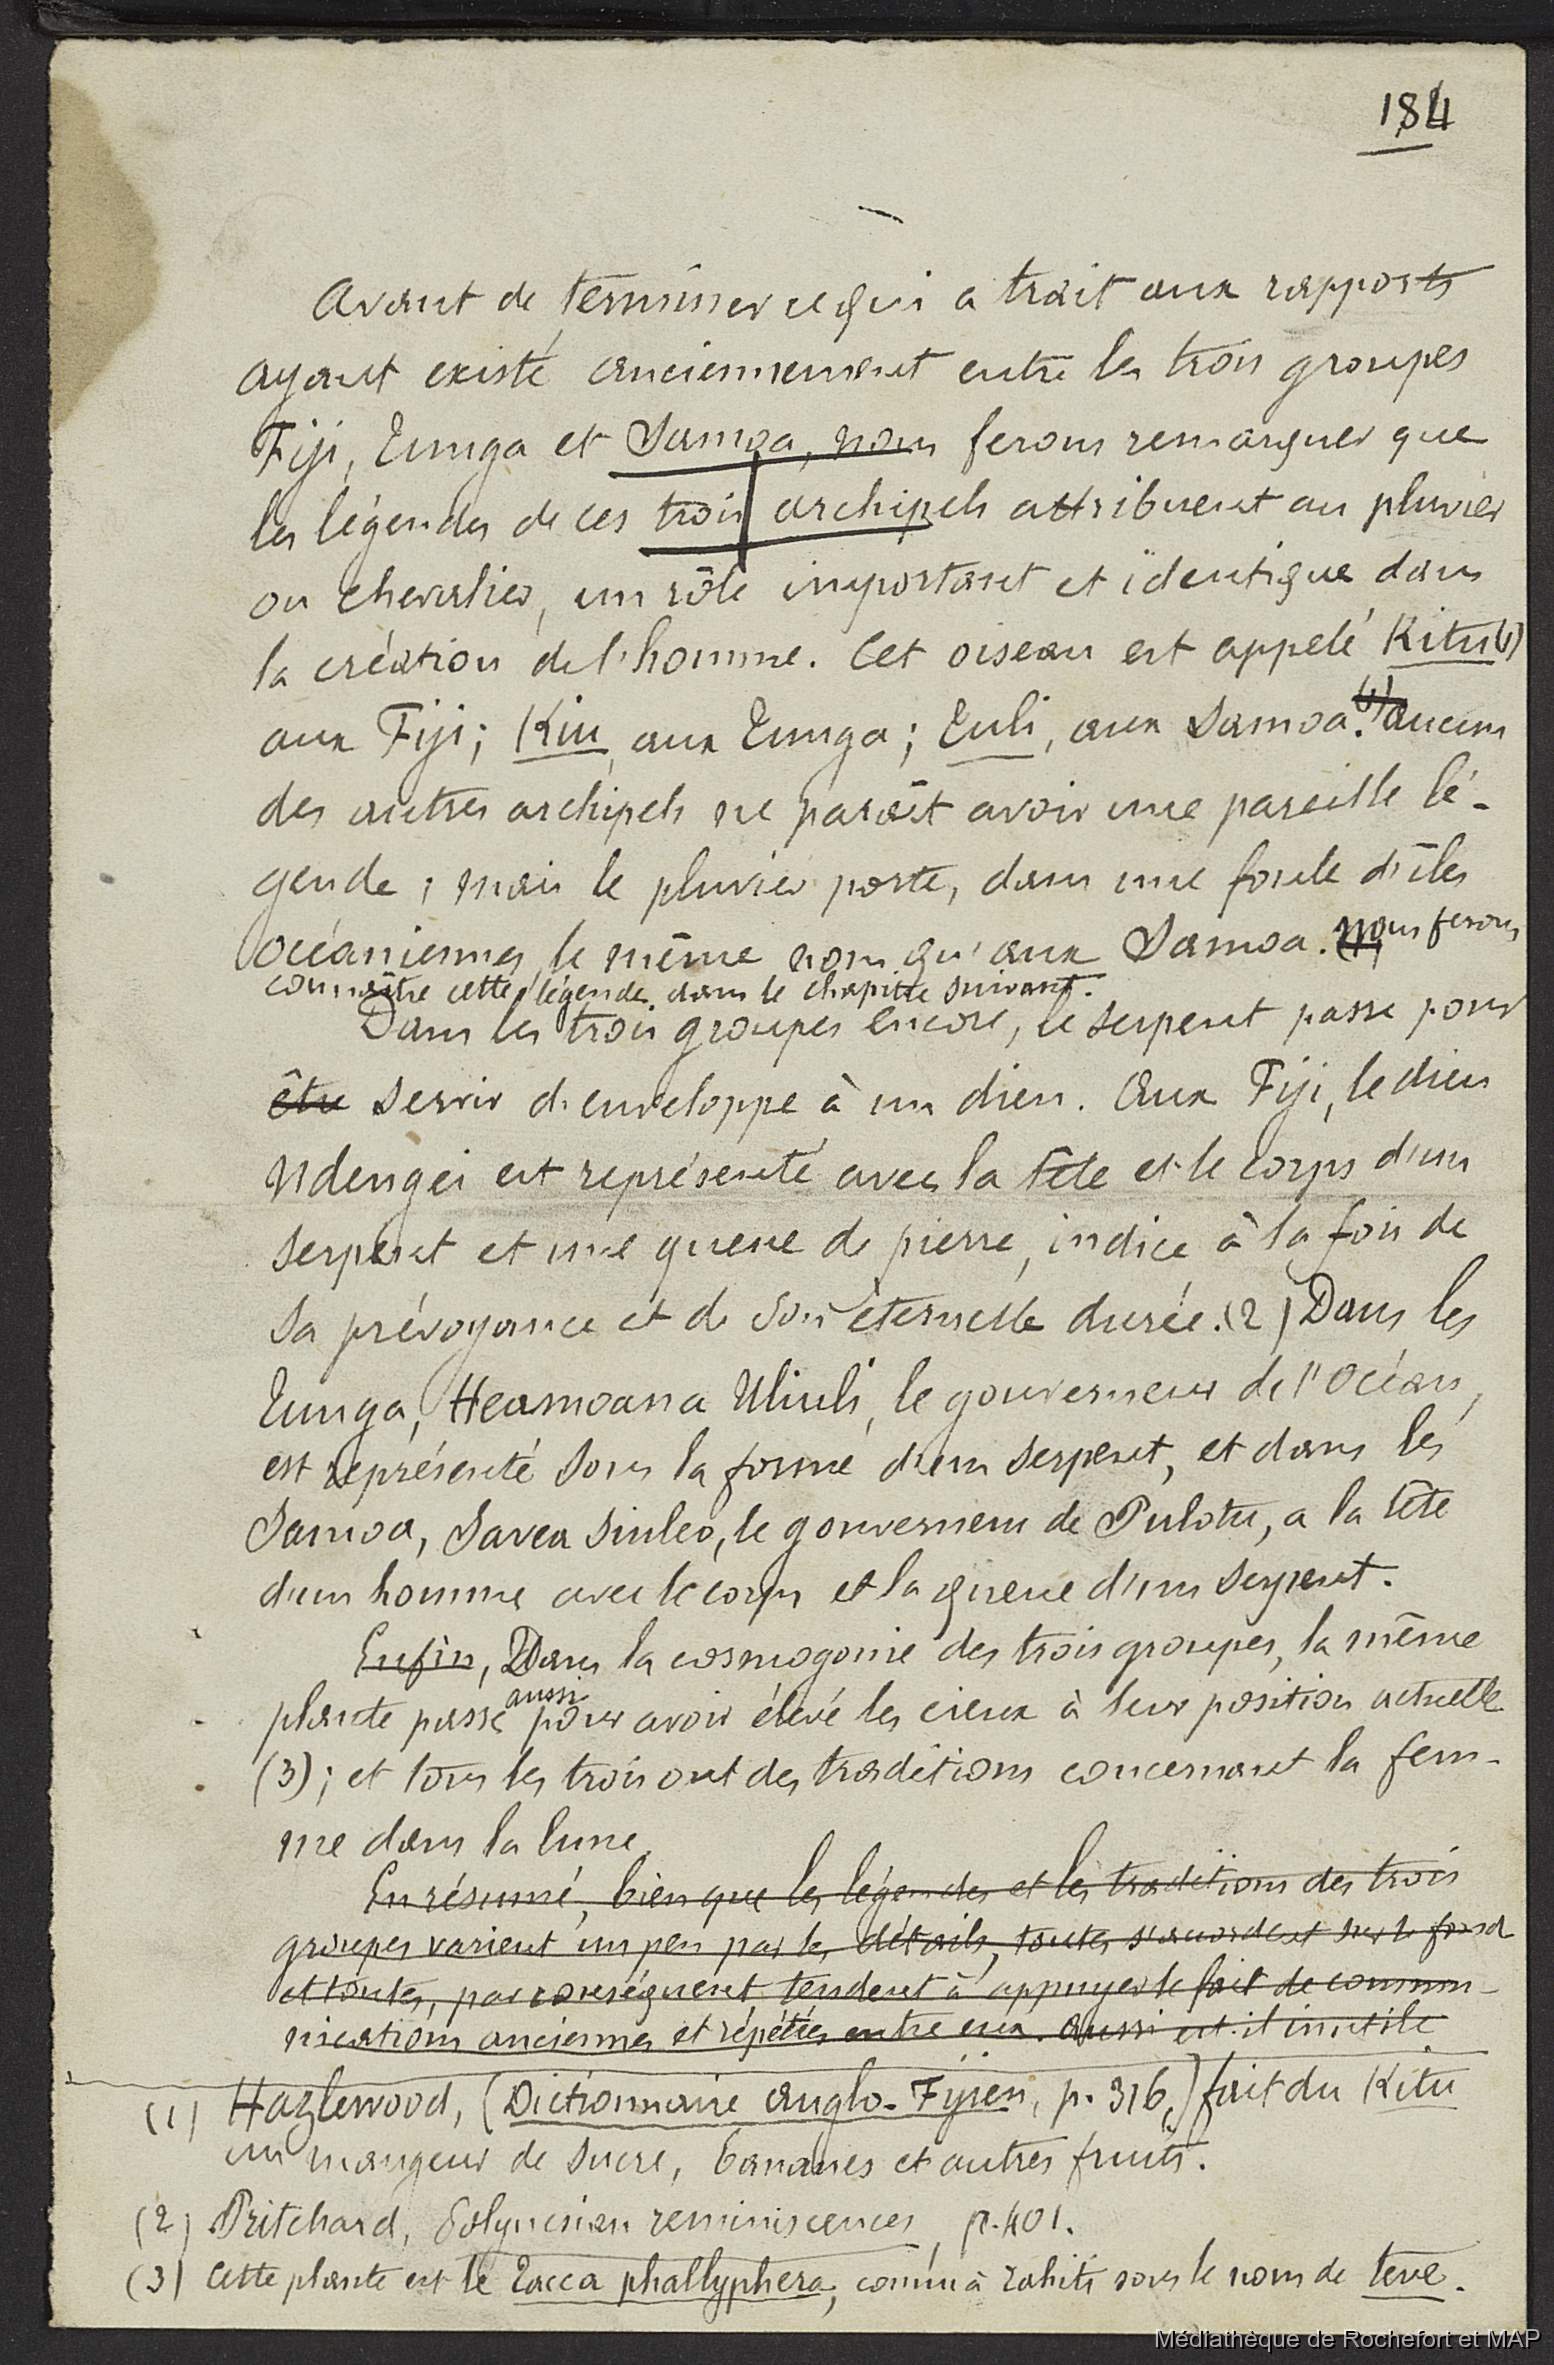 184
Avant de terminer ce qui a trait aux rapports
ayant existé anciennement entre les trois groupes
Fiji, Tunga et Samoa, nous ferons remarquer que
les légendes de ces trois archipels attribuent au pluvier
ou chevalier, un rôle important et identique dans
la création de l'homme. Cet oiseau est appelé Kitu (1)
aux Fiji; Kiu, aux Tunga; Tuli, aux Samoa. (1) aucun
des autres archipels ne paraît avoir une pareille lé-
gende; mais le pluvier porte, dans une foule d'îles
océaniennes, le même nom qu'aux Samoa. nous ferons
connaître cette légende dans le chapitre suivant.
Dans les trois groupes encore, le serpent passe pour
être servir d'enveloppe à un dieu. Aux Fiji, le dieu
Ndengei est représenté avec la tête et le corps d'un
serpent et une queue de pierre, indice à la fois de
sa prévoyance et de son éternelle durée. (2) Dans les
Tunga, Heamoana Uliuli, le gouverneur de l'Océan,
est représenté sous la forme d'un serpent, et dans les
Samoa, Savea Siuleo, le gouverneur de Pulotu, a la tête
d'un homme avec le corps et la queue d'un serpent.
Enfin, Dans la cosmogonie des trois groupes, la même
plante passe aussi pour avoir élevé les cieux à leur position actuelle
(3); et tous les trois ont des traditions concernant la fem-
me dans la lune.
En résumé, bien que les légendes et les traditions des trois
groupes varient un peu par les détails, toutes s'accordent sur le fond
et toutes, par conséquent, tendent à appuyer le fait de commu-
nications anciennes et répétées entre eux. Aussi est-il inutile
(1) Hazlewood, (Dictionnaire Anglo-Fijien, p. 316,) fait du Kitu
un mangeur de sucre, bananes et autres fruits.
(2) Pritchard, Polynesian reminiscences, p. 401.
(3) Cette plante est le Tacca phallyphera, connu à Tahiti sous le nom de teve.
Médiathèque de Rochefort et MAP